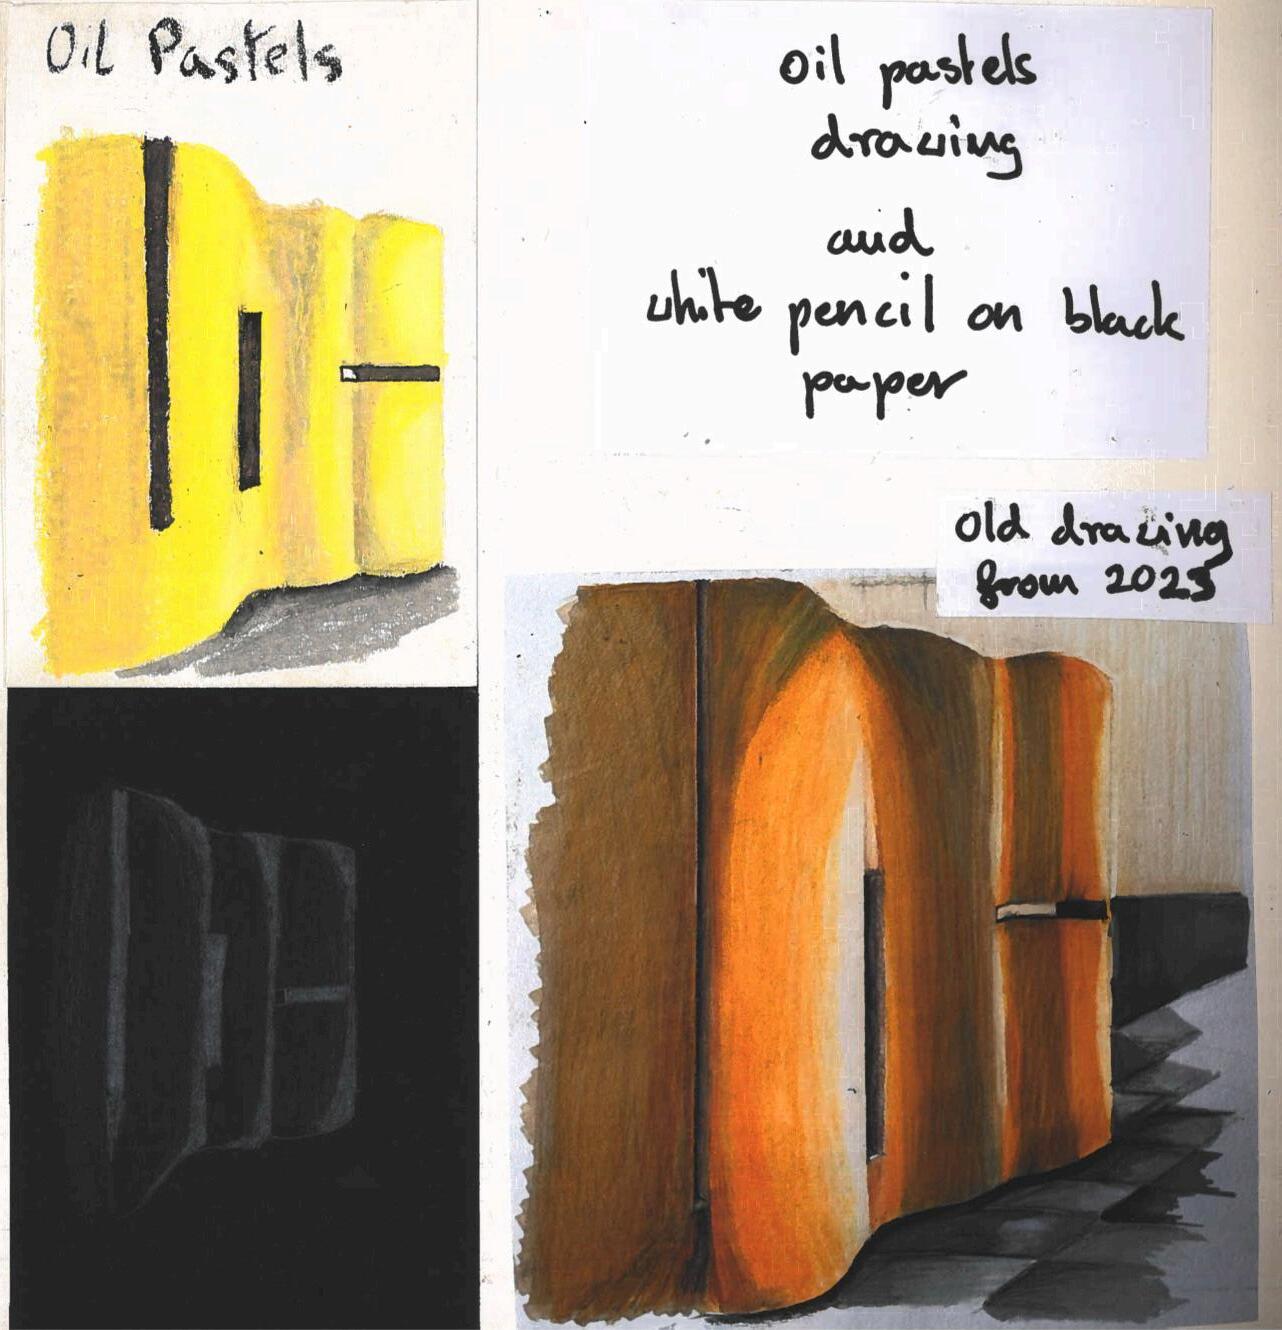 Oil Pastels
Oil pastels
drawing
and
white pencil on black
paper
Old drawing
from 2023